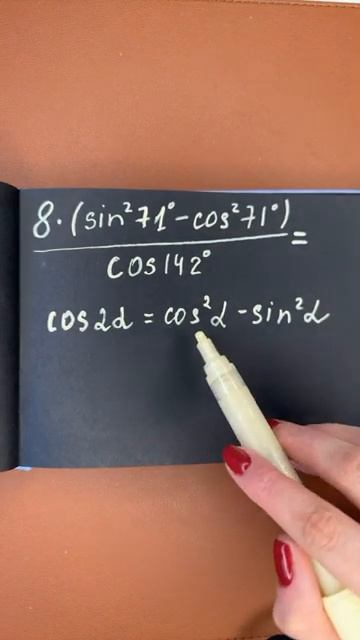 8·(sin²71°-cos²71°)
=
cos142°
cos2α = cos²α - sin²α